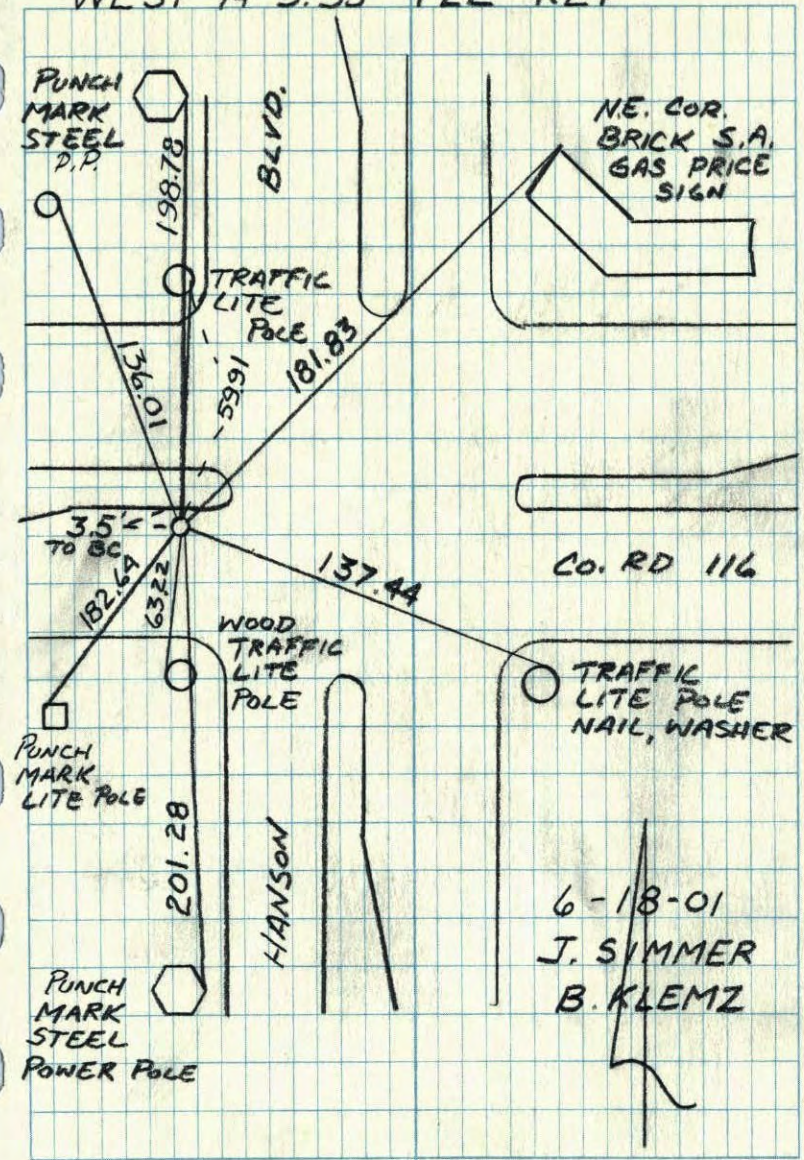 PUNCH
MARK
STEEL
P.P.
198.78
BLVD.
N.E. COR.
BRICK S.A.
GAS PRICE
SIGN
TRAFFIC
LITE
POLE
136.01
59.91
181.83
3.5'
TO BC
182.64
63.22
137.44
CO. RD 116
WOOD
TRAFFIC
LITE
POLE
TRAFFIC
LITE POLE
NAIL, WASHER
PUNCH
MARK
LITE POLE
201.28
HANSON
6-18-01
J. SIMMER
B. KLEMZ
PUNCH
MARK
STEEL
POWER POLE